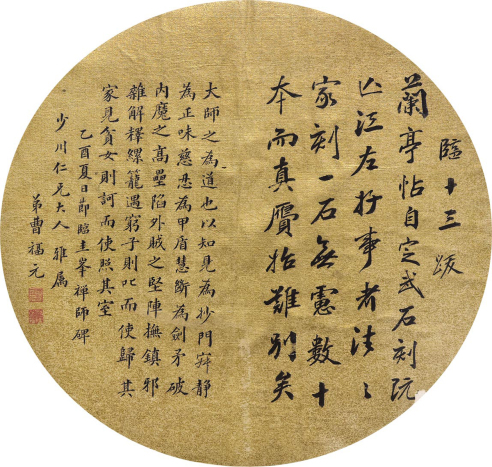 臨十三跋
蘭亭帖自定武石刻既
亾江左好事者往〻
家刻一石無慮數十
本而真贋始難別矣
大師之為道也以知見為妙門寂静
為正味慈忍為甲盾慧斷為劍矛破
内魔之高壘陷外賊之堅陣撫鎮邪
雜解釋縲籠遇窮子則叱而使歸其
家見貧女則訶而使照其室
乙酉夏日節臨圭峯禪師碑
少川仁兄大人雅属
弟曹福元